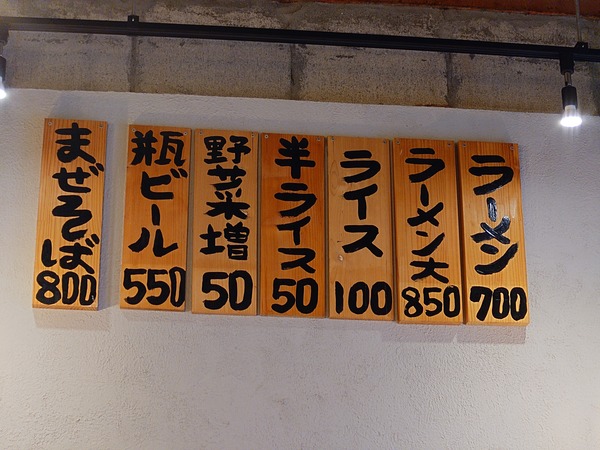 ラーメン
700
ラーメン大
850
ライス
100
半ライス
50
野菜増
50
瓶ビール
550
まぜそば
800